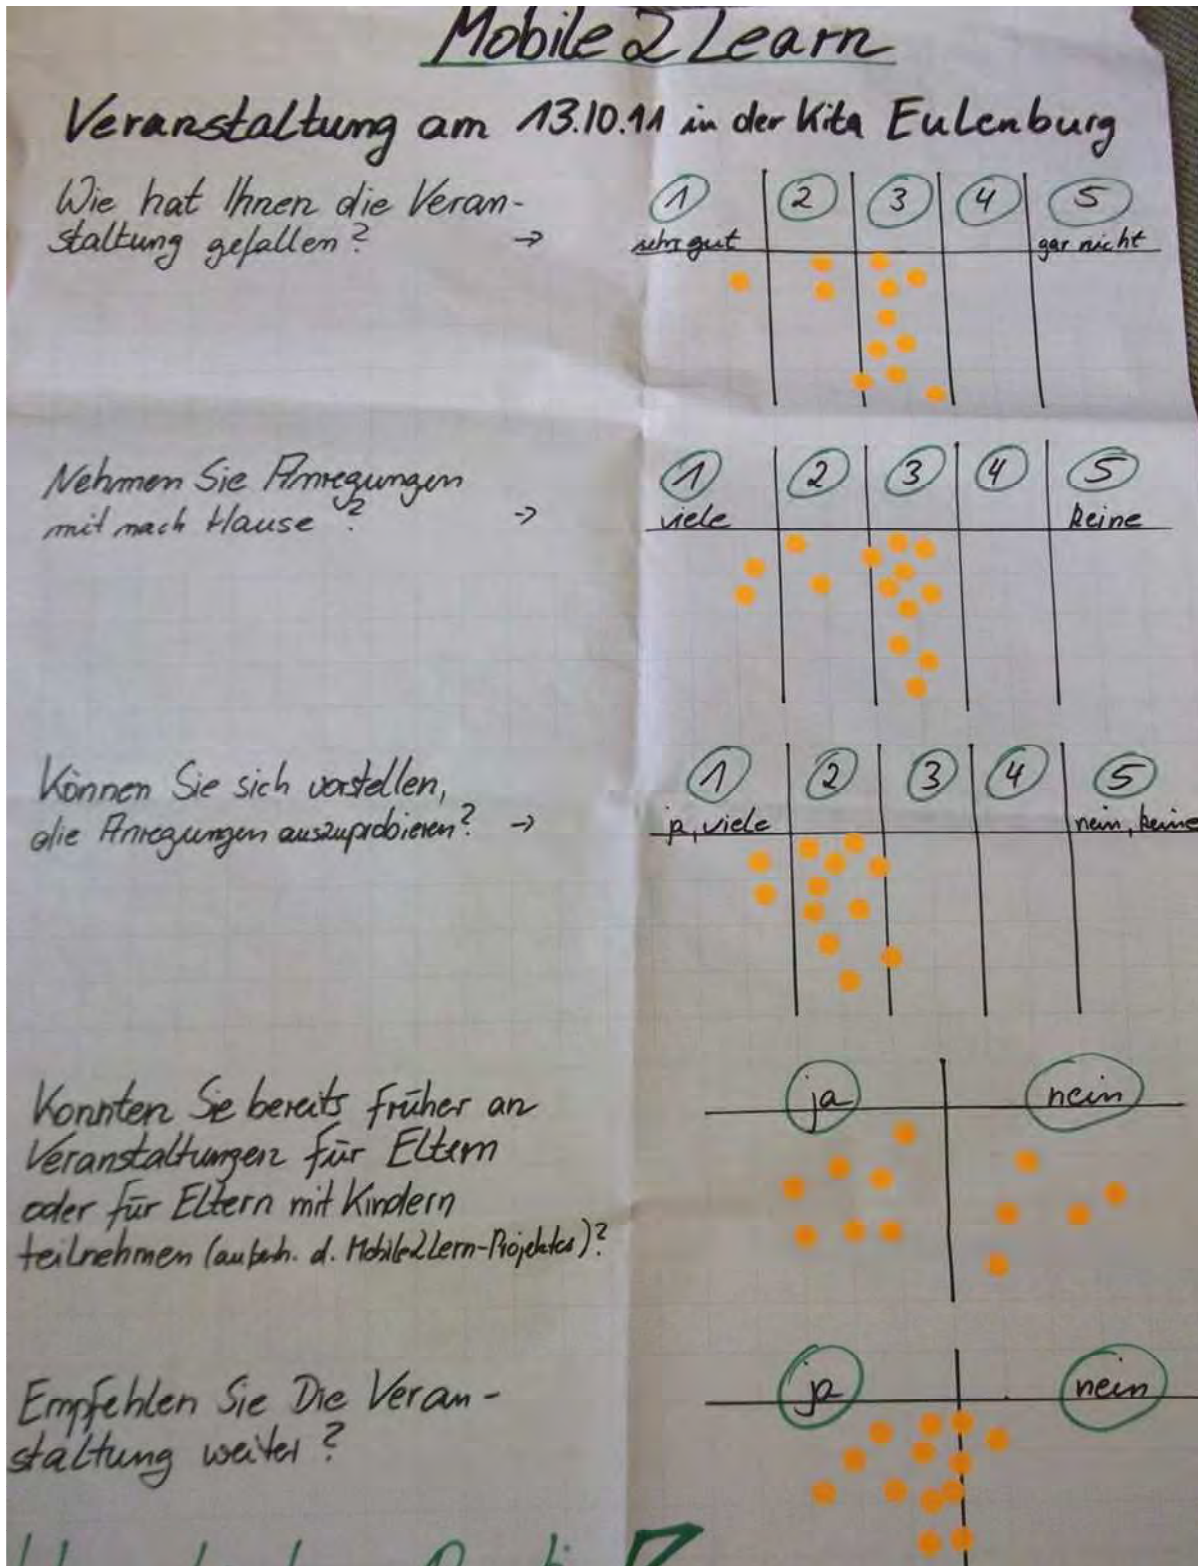 Mobile2Learn
Veranstaltung am 13.10.11 in der Kita Eulenburg
Wie hat Ihnen die Veran-
staltung gefallen? →
1 2 3 4 5
sehr gut gar nicht
Nehmen Sie Anregungen
mit nach Hause? →
1 2 3 4 5
viele keine
Können Sie sich vorstellen,
die Anregungen auszuprobieren? →
1 2 3 4 5
ja, viele nein, keine
Konnten Sie bereits früher an
Veranstaltungen für Eltern
oder für Eltern mit Kindern
teilnehmen (außerh. d. Mobile2Lern-Projektes)?
ja nein
Empfehlen Sie Die Veran-
staltung weiter?
ja nein